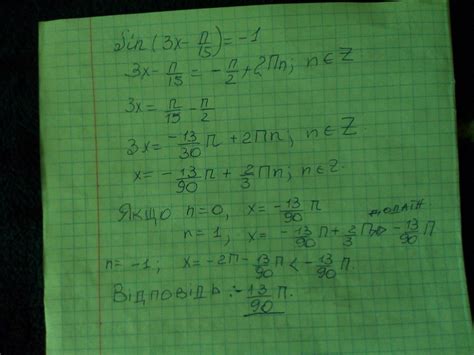 Sin(3x - π/15) = -1
3x - π/15 = -π/2 + 2Πn; n∈Z
3x = π/15 - π/2
3x = -13/30 Π + 2Πn; n∈Z
x = -13/90 Π + 2/3 Πn; n∈Z.
Якщо n=0, x = -13/90 Π
n=1, x = -13/90 Π + 2/3 Π > -13/90 Π
n=-1; x = -2Π - 13/90 Π < -13/90 Π.
Відповідь: -13/90 Π.